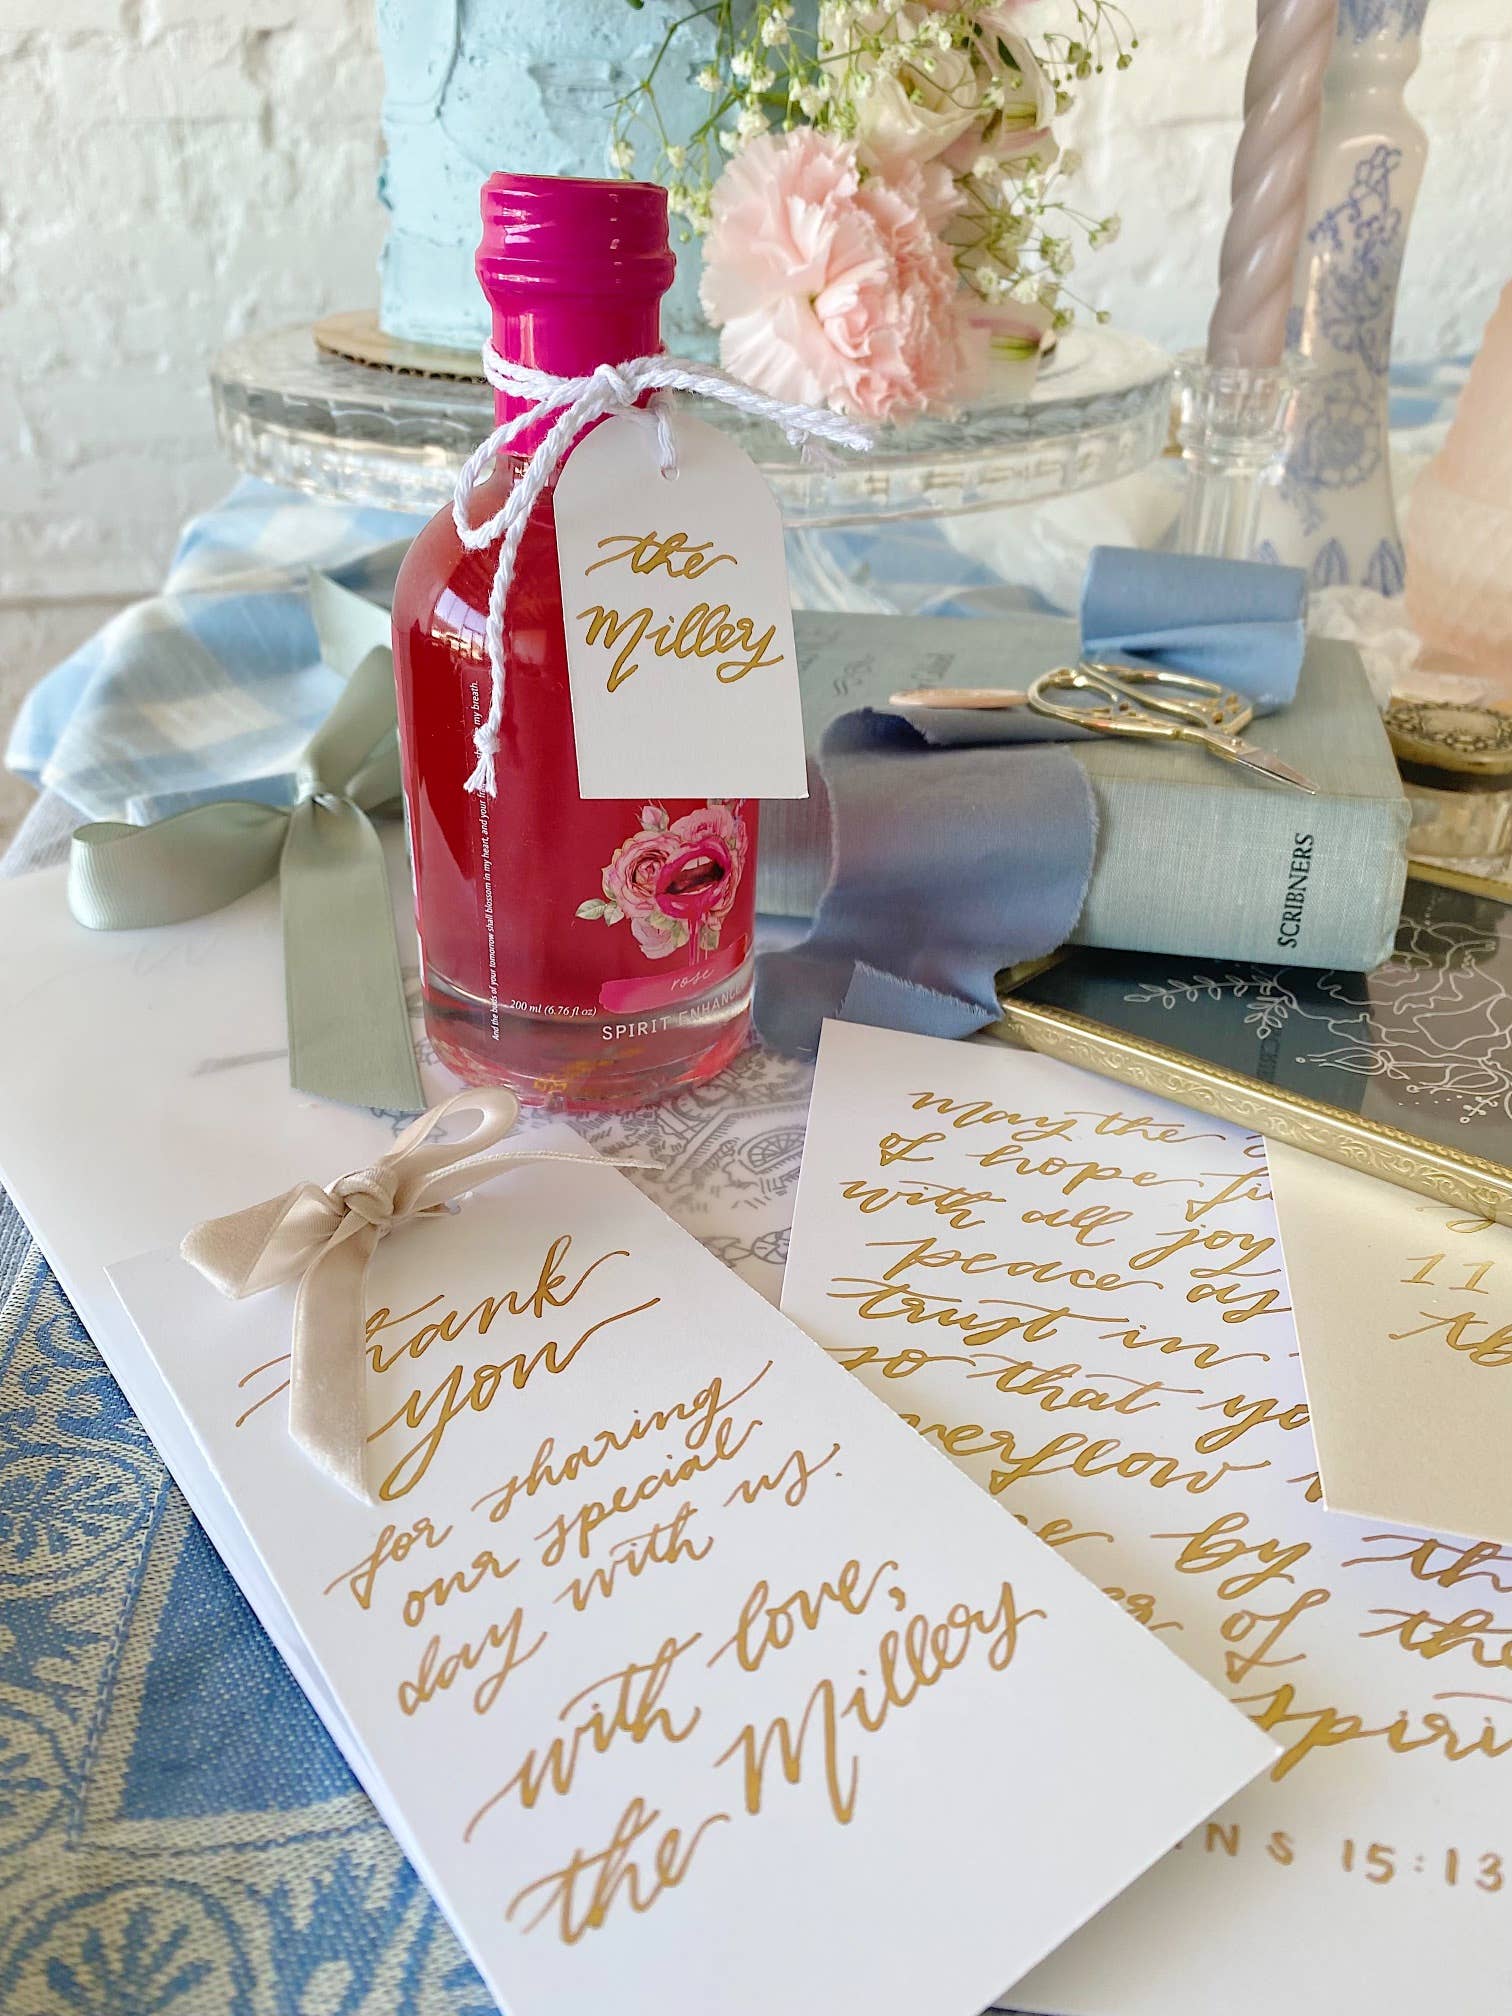 the
Milley
my breath.
And the buds of your tomorrow shall blossom in my heart, and your
200 ml (6.76 fl oz)
rose
SPIRIT ENHANCE
SCRIBNERS
Thank
you
for sharing
our special
day with us.
with love,
the Milley
May the
of hope
with all joy
peace as
trust in
so that
overflow
by the
of the
15:13
11